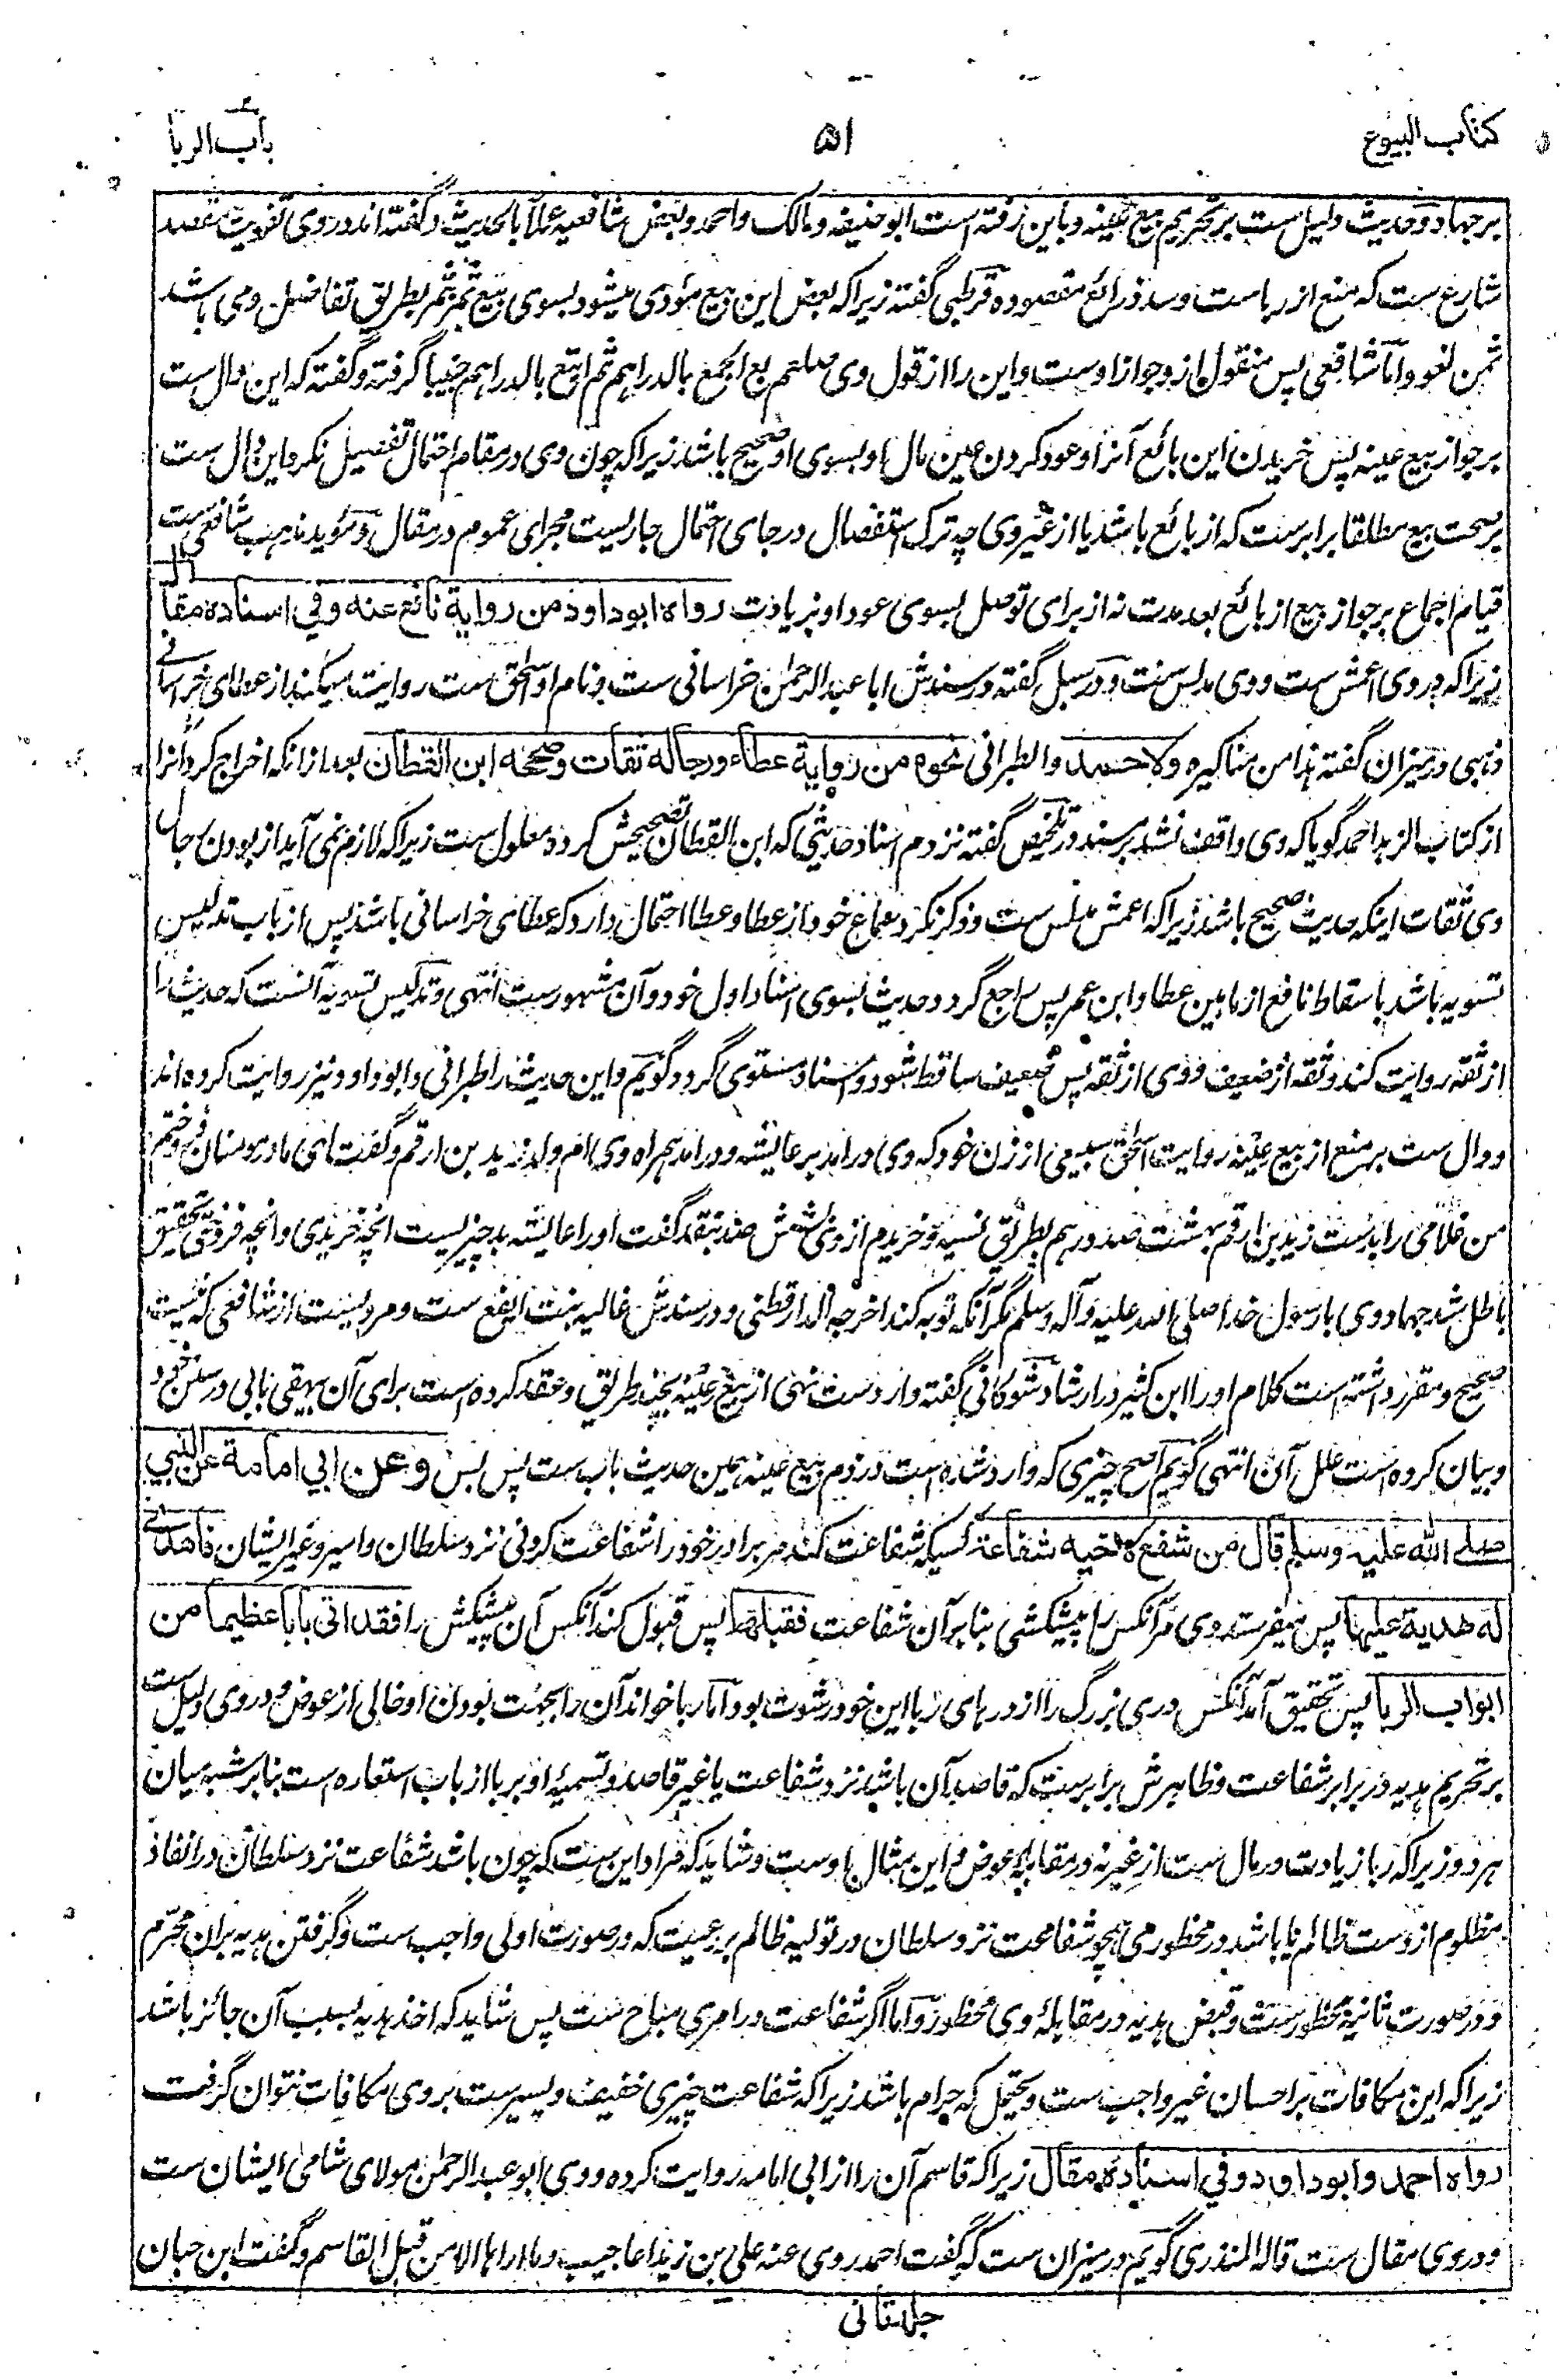 کتاب البیوع
۵۱
باب الربا
بر جهاد و حدیث دلیل ست بر تحریم بیع عینه و باین رفته است ابوحنیفه و مالک و احمد و بعض شافعیه عملاً بالحدیث و گفته اند در وی تفویت مقصد
شارع ست که منع از ربا ست و سد ذرائع مقصوده قرطبی گفته زیرا که بعض این بیع مؤدی میشود بسوی بیع تمر بتمر بطریق تفاضل و می باشد
ثمن لغو و اما شافعی پس منقول ازو جواز اوست و این را از قول وی صلعم بع الجمع بالدراهم ثم ابتع بالدراهم جنیبا گرفته و گفته که این دال ست
بر جواز بیع عینه پس خریدن این بائع آنرا و عود کردن عین مال او بسوی او صحیح باشد زیرا که چون وی در مقام احتمال تفصیل نکرد این دال ست
بر صحت بیع مطلقا برابرست که از بائع باشد یا از غیر وی چه ترک استفصال در جای احتمال جاریست مجرای عموم در مقال و مؤید مذهب شافعی ست
قیام اجماع بر جواز بیع از بائع بعد مدت نه از برای توصل بسوی عود او بزیادت رواه ابوداود من روایة نافع عنه وفي اسناده مقال
زیرا که در وی اعمش ست و وی مدلس ست و در سبل گفته در سندش ابا عبد الرحمٰن خراسانی ست و نام او اسحٰق ست روایت میکند از عطای خراسانی
ذهبی در میزان گفته هذا من مناکیره ولاحمد والطبرانی نحوه من روایة عطاء ورجاله ثقات وصححه ابن القطان بعد ازانکه اخراج کرد آنرا
از کتاب الزهد احمد گویا که وی واقف نشد بر سند و در تلخیص گفته نزدم اسناد حدیثی که ابن القطان تصحیحش کرده معلول ست زیرا که لازم نمی آید از بودن رجال
وی ثقات اینکه حدیث صحیح باشد زیرا که اعمش مدلس ست و ذکر نکرد سماع خود از عطا و عطا احتمال دارد که عطای خراسانی باشد پس از باب تدلیس
تسویه باشد باسقاط نافع از مابین عطا و ابن عمر پس راجع گردد حدیث بسوی اسناد اول خود و آن مشهورست انتهی و تدلیس تسویه آنست که حدیث را
از ثقه روایت کند و ثقه از ضعیف و وی از ثقه پس ضعیف ساقط شود و اسناد مستوی گردد گویم و این حدیث را طبرانی و ابوداود نیز روایت کرده اند
و دال ست بر منع از بیع عینه روایت اسحٰق سبیعی از زن خود که وی درآمد بر عایشه و درآمد همراه وی ام ولد زید بن ارقم و گفت ای مادر مومنان فروختم
من غلامی را بدست زید بن ارقم بهشت صد درهم بطریق نسیه و خریدم از وی بشش صد بنقد گفت او را عایشه بد چیزیست انچه خریدی و انچه فروختی بتحقیق
باطل شد جهاد وی با رسول خدا صلی الله علیه وآله وسلم مگر آنکه توبه کند اخرجه الدارقطنی و در سندش غالیه بنت ایفع ست و مرویست از شافعی که نیست
صحیح و مقرر داشته است کلام او را ابن کثیر در ارشاد شوکانی گفته وارد ست نهی از بیع عینه بچند طریق و عقد کرده است برای آن بیهقی بابی در سنن خود
و بیان کرده است علل آن انتهی گویم اصح چیزی که وارد شده است در ذم بیع عینه همین حدیث باب ست پس بس وعن ابی امامة عن النبي
صلے الله علیه وسلم قال من شفع لاخیه شفاعة کسیکه شفاعت کند مر برادر خود را شفاعت کردنی نزد سلطان و امیر و غیر ایشان فاهدی
له هدیة علیها پس میفرستد وی مر آنکس را پیشکشی بنا بر آن شفاعت فقبلها پس قبول کند آنکس آن پیشکش را فقد اتی بابا عظیما من
ابواب الربا پس بتحقیق آمد آنکس دری بزرگ را از درهای ربا این خود رشوت بود اما ربا خواند آن را بجهت بودن او خالی از عوض و در وی دلیل ست
بر تحریم هدیه در برابر شفاعت و ظاهرش برابرست که قاصد آن باشد نزد شفاعت یا غیر قاصد و تسمیهٔ او بربا از باب استعاره است بنا بر شبه میان
هر دو زیرا که ربا زیادت در مال ست از غیر نه در مقابلهٔ عوض و این مثال اوست و شاید که مراد این ست که چون باشد شفاعت نزد سلطان در انقاذ
مظلوم از دست ظالم یا باشد در محظوری همچو شفاعت نزد سلطان در تولیه ظالم بر رعیت که در صورت اولی واجب ست و گرفتن هدیه بران محرم
و در صورت ثانیه محظورست و قبض هدیه در مقابلهٔ وی محظور و اما اگر شفاعت در امری مباح ست پس شاید که اخذ هدیه بسبب آن جائز باشد
زیرا که این مکافات بر احسان غیر واجب ست و یحتمل که حرام باشد زیرا که شفاعت چیزی خفیف و یسیرست بر وی مکافات نتوان گرفت
رواه احمد وابوداود وفي اسناده مقال زیرا که قاسم آن را از ابی امامه روایت کرده و وی ابو عبد الرحمٰن مولای شامی ایشان ست
و در وی مقال ست قاله المنذری گویم در میزان ست که گفت احمد روی عنه علی بن زید اعاجیب وما اراها الا من قبل القاسم و گفت ابن حبان
جلد ثانی